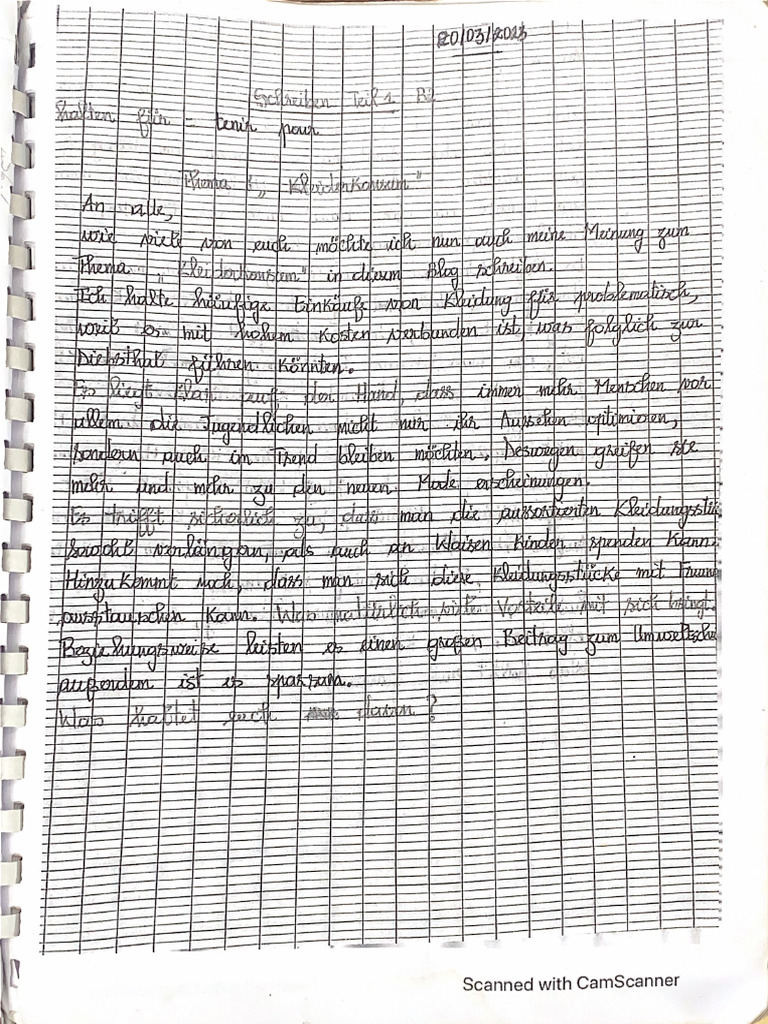 20/03/2023
Schreiben Teil 1 B2
halten für = tenir pour
Thema : „Kleiderkonsum"
An alle,
wie viele von euch möchte ich nun auch meine Meinung zum
Thema „Kleiderkonsum" in diesem Blog schreiben.
Ich halte häufige Einkäufe von Kleidung für problematisch,
weil es mit hohem Kosten verbunden ist, was folglich zur
Diebsthal führen könnten.
Es liegt klar auf der Hand, dass immer mehr Menschen vor
allem die Jugendlichen nicht nur ihr Aussehen optimieren,
sondern auch im Trend bleiben möchten. Deswegen greifen sie
mehr und mehr zu den neuen Mode erscheinungen.
Es trifft sicherlich zu, dass man die aussortierten Kleidungsstü
sowohl verlängern, als auch an Waisen Kinder spenden kann.
Hinzu kommt noch, dass man sich diese Kleidungsstücke mit
austauschen kann. Was natürlich viele Vorteile mit sich bringt.
Beziehungsweise leisten es einen großen Beitrag zum Umweltschu
außerdem ist es sparsam.
Was haltet euch davon ?
Scanned with CamScanner